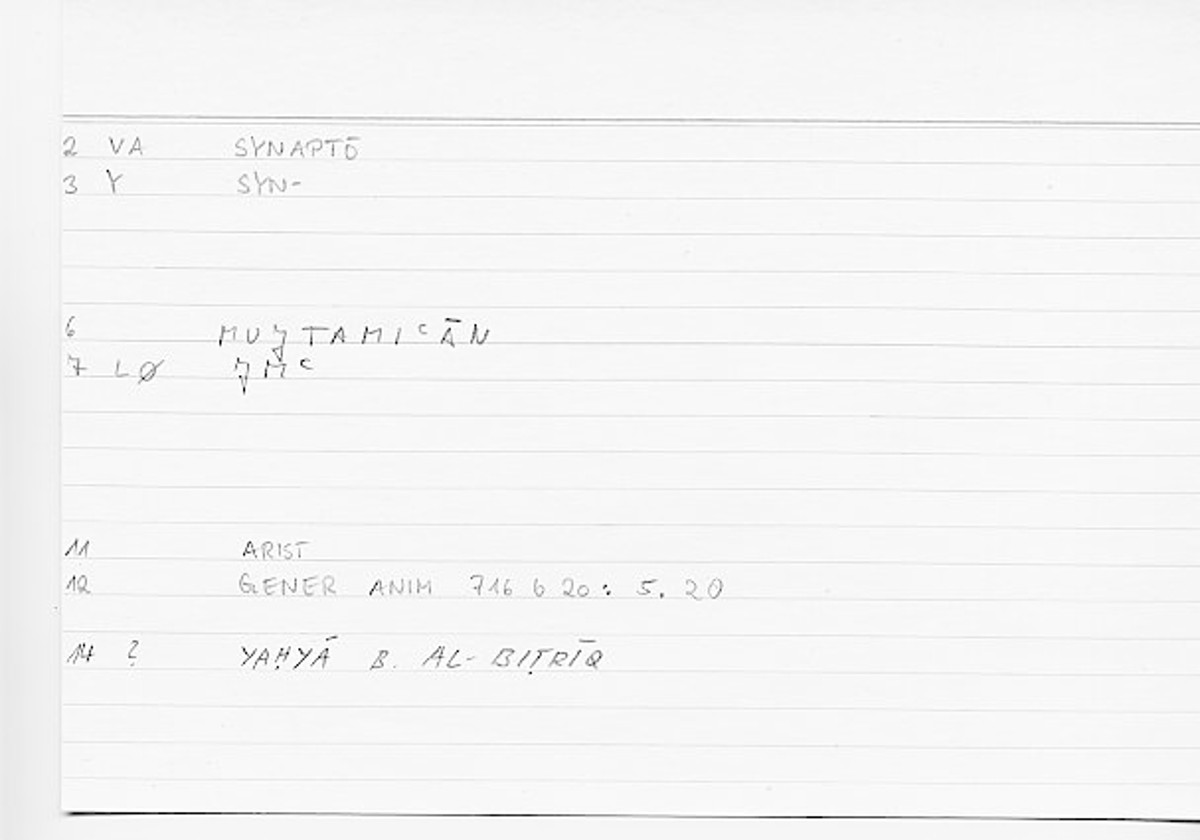 2 VA SYNAPTŌ
3 Y SYN-
6 MUǦTAMIʿĀN
7 LØ ǦMʿ
11 ARIST
12 GENER ANIM 716 b 20: 5.20
14 ? YAḤYĀ B. AL-BIṬRĪQ